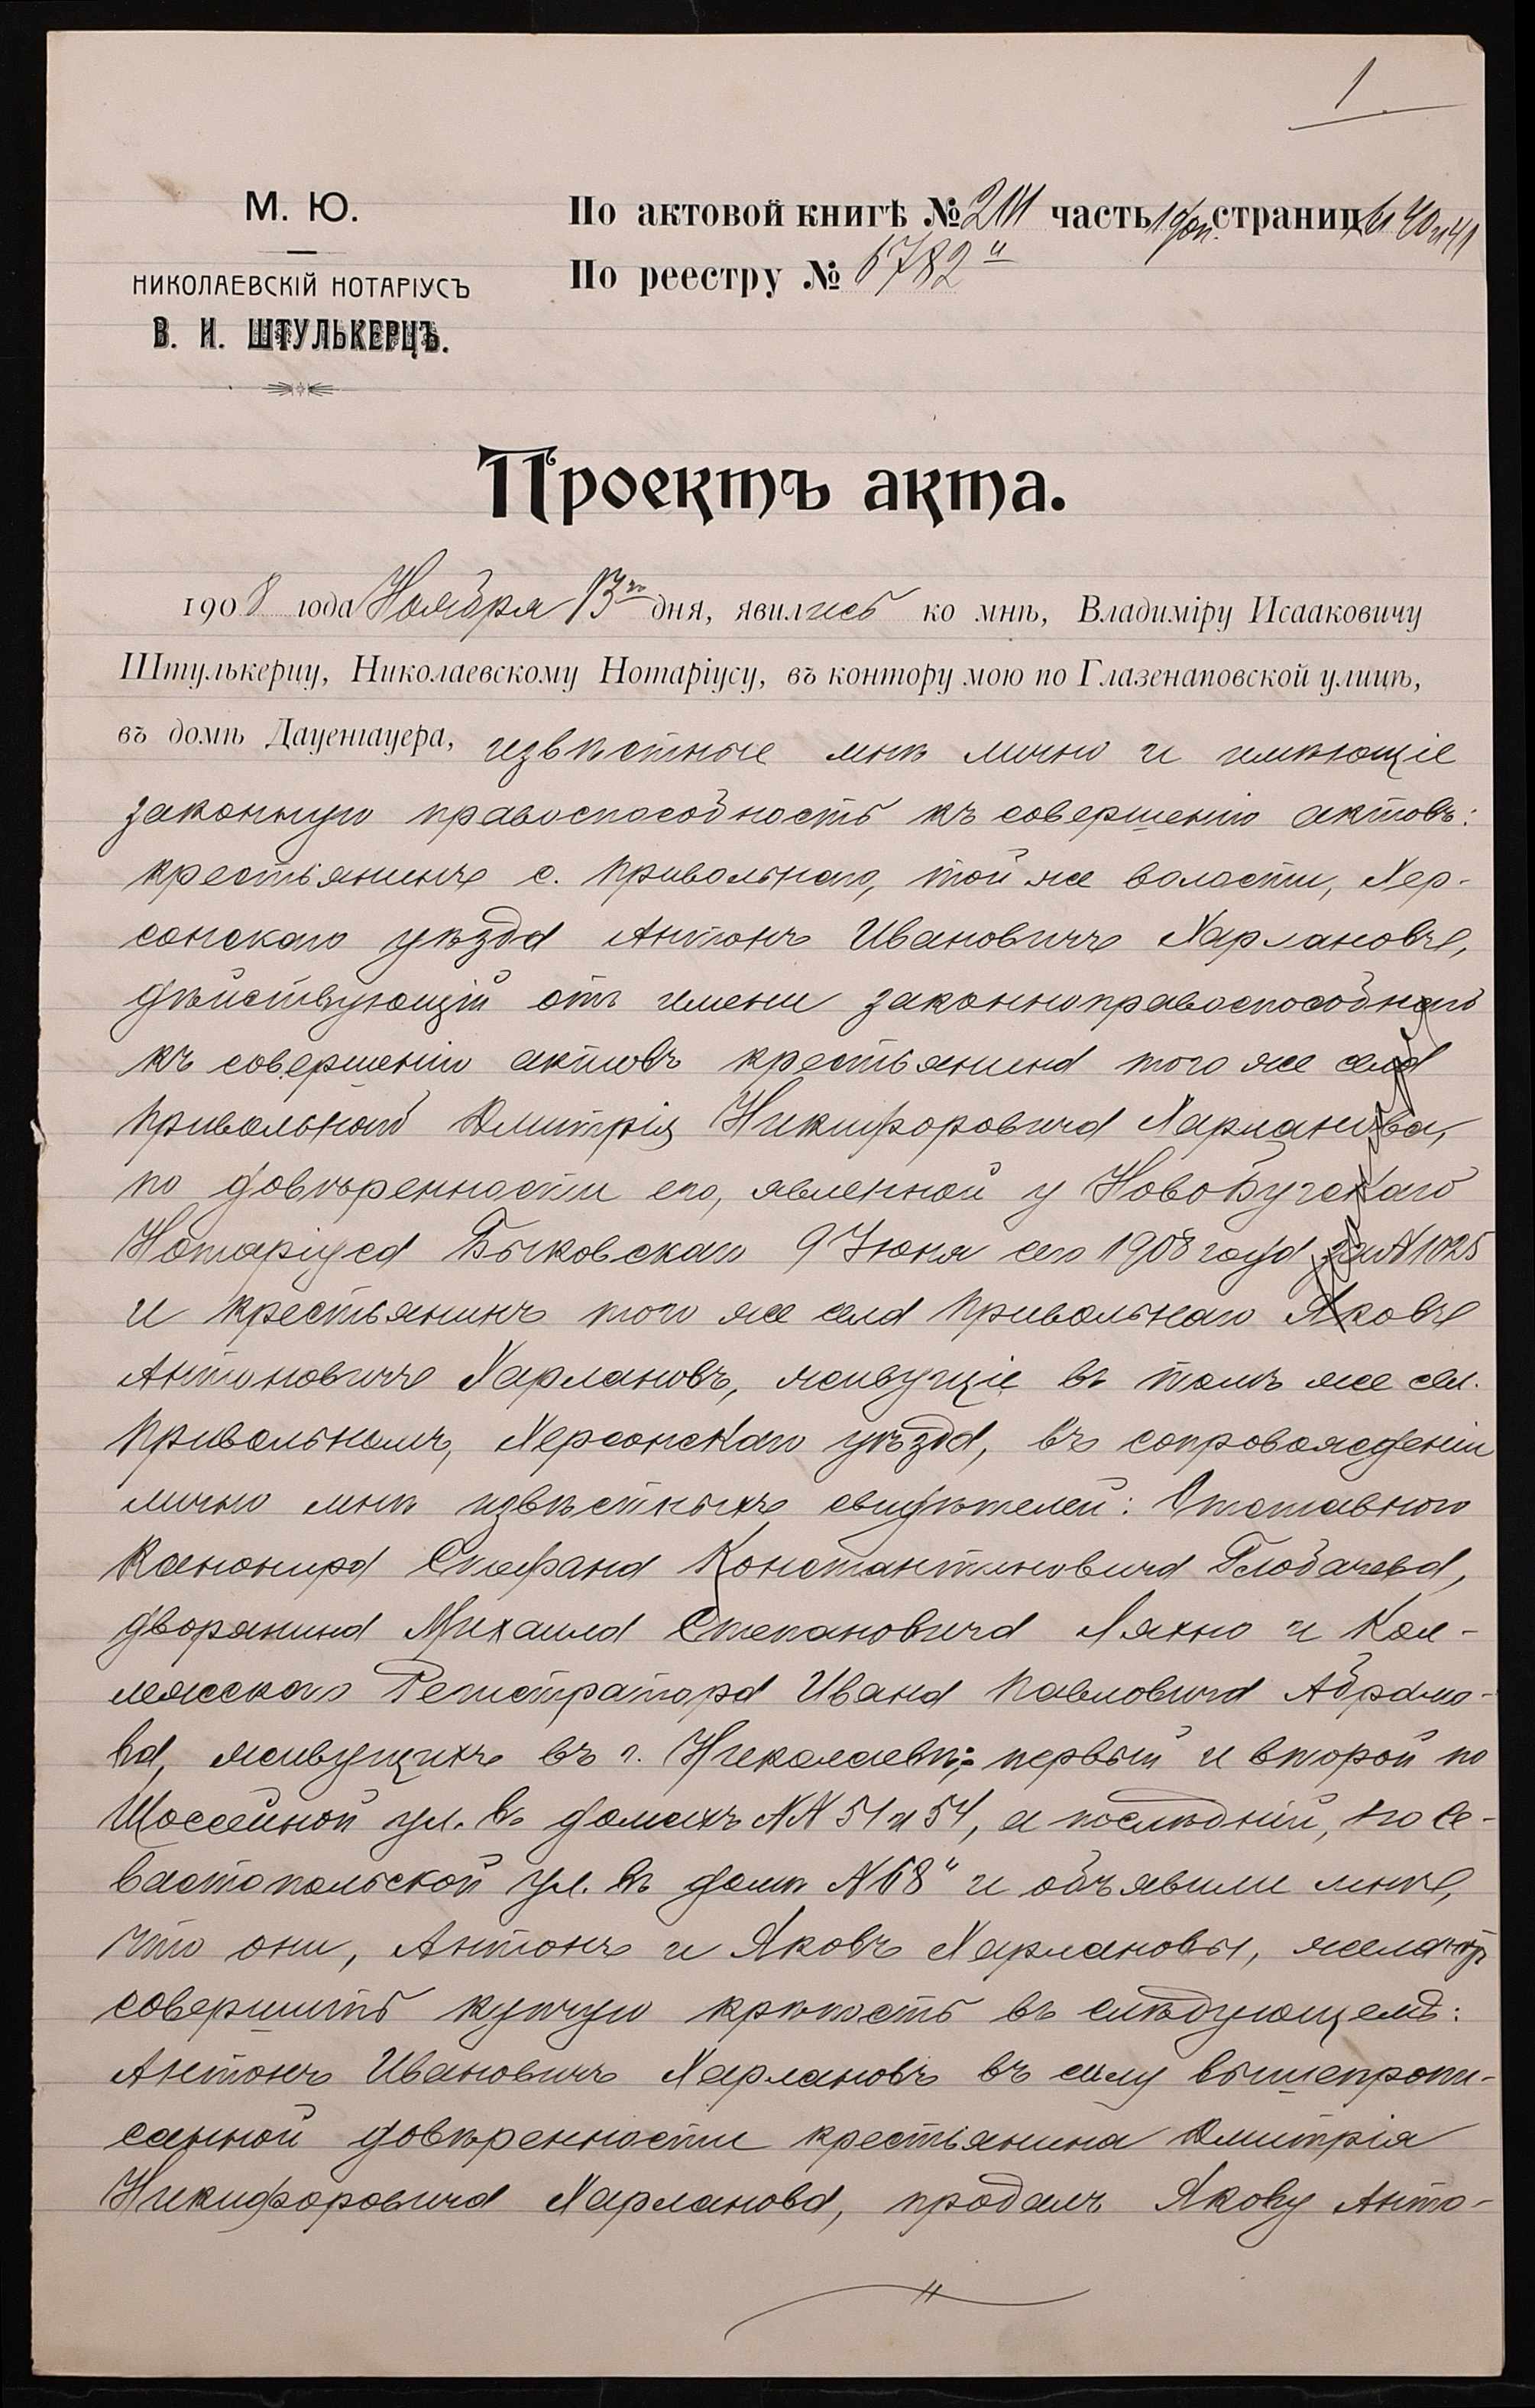 1
М. Ю.
НИКОЛАЕВСКІЙ НОТАРІУСЪ
В. И. ШТУЛЬКЕРЦЪ.
По актовой книгѣ № часть 1 страницы 40 и 41
По реестру № 6782
Проектъ акта.
1908 года Ноября 13го дня, явились ко мнѣ, Владиміру Исааковичу
Штулькерцу, Николаевскому Нотаріусу, въ контору мою по Глазенаповской улицѣ,
въ домѣ Дауенгауера, извѣстные мнѣ лично и имѣющіе
законную правоспособность къ совершенію актовъ:
крестьянинъ с. Привольнаго, той же волости, Хер-
сонскаго уѣзда Антонъ Ивановичъ Харлановъ,
дѣйствующій отъ имени законноправоспособнаго
къ совершенію актовъ крестьянина того же села
Привольнаго Дмитрія Никифоровича Харланова,
по довѣренности его, явленной у НовоБугскаго
Нотаріуса Быковскаго 9 Іюня сего 1908 года за № 1025
и крестьянинъ того же села Привольнаго Яковъ
Антоновичъ Харлановъ, живущіе въ томъ же сел.
Привольномъ, Херсонскаго уѣзда, въ сопровожденіи
лично мнѣ извѣстныхъ свидѣтелей: Отставного
Канонира Стефана Константиновича Глобачева,
дворянина Михаила Степановича Ляхно и Кол-
лежскаго Регистратора Ивана Павловича Абрамо-
ва, живущихъ въ г. Николаевѣ: первый и второй по
Шоссейной ул. въ домахъ №№ 51 и 54, а послѣдній, по Се-
вастопольской ул. въ домѣ № 68" и объявили мнѣ,
что они, Антонъ и Яковъ Харлановы, желаютъ
совершить купчую крѣпость въ слѣдующемъ:
Антонъ Ивановичъ Харлановъ въ силу вышепропи-
санной довѣренности крестьянина Дмитрія
Никифоровича Харланова, продалъ Якову Анто-